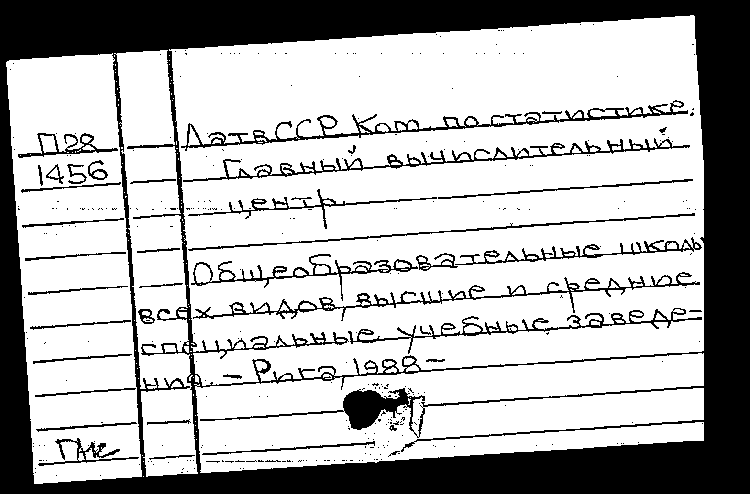 П28
1456
ЛатвССР. Ком. по статистике.
Главный вычислительный
центр.
Общеобразовательные школы
всех видов, высшие и средние
специальные учебные заведе-
ния. – Рига, 1988 –